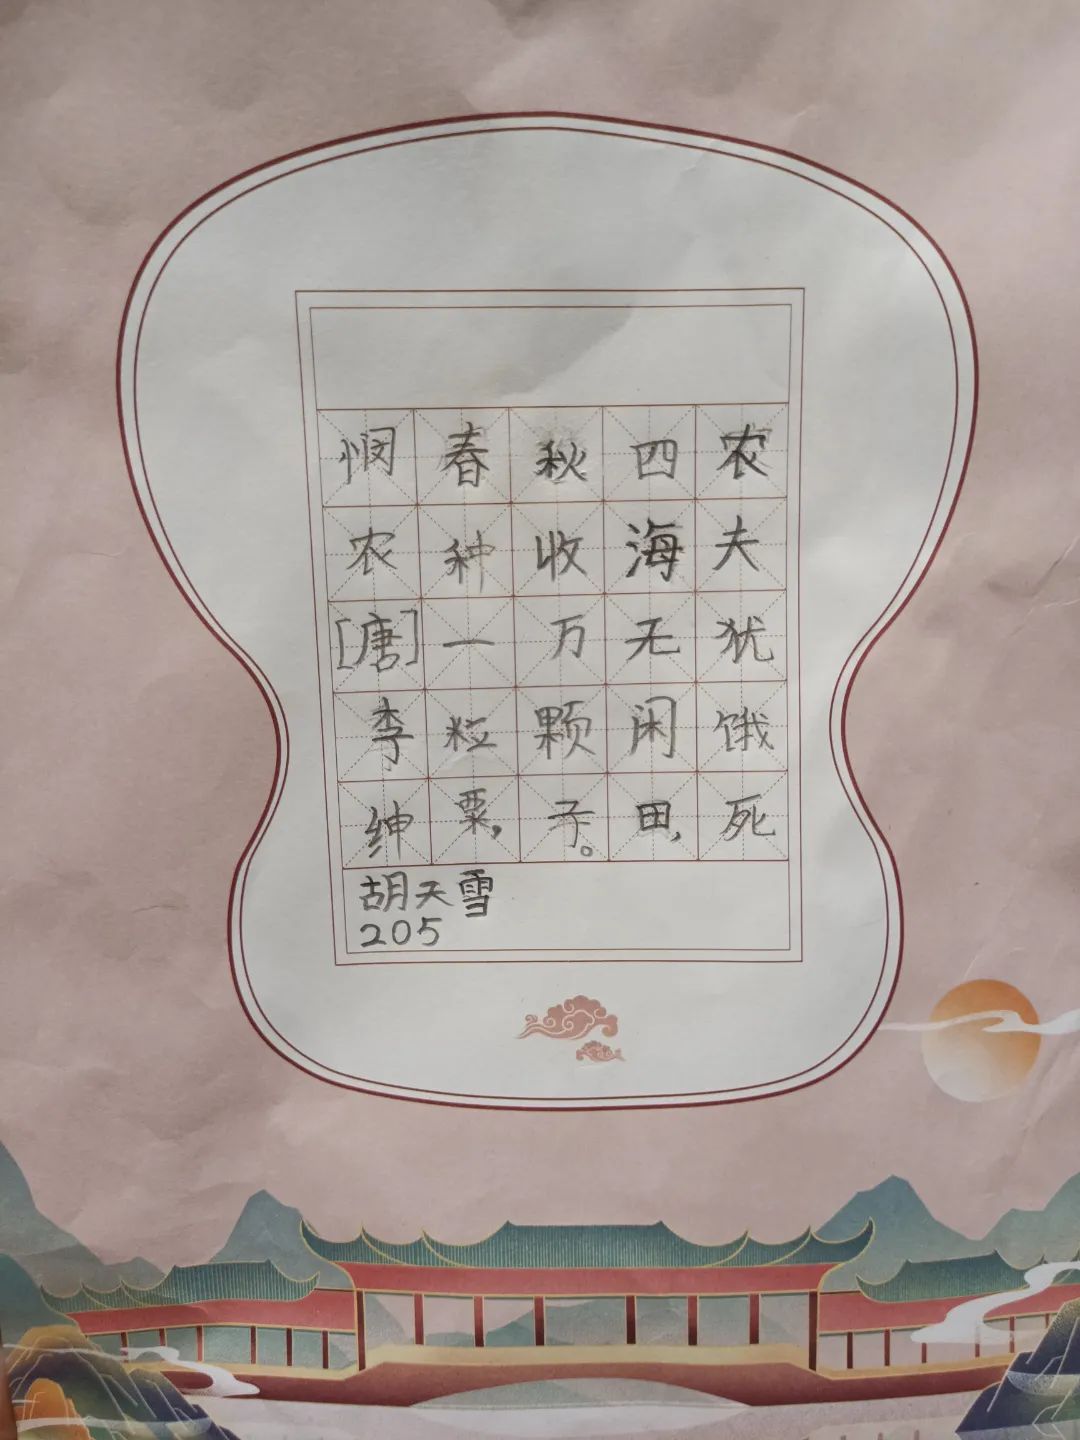 悯农[唐]李绅
春种一粒粟，
秋收万颗子。
四海无闲田，
农夫犹饿死
胡天雪
205